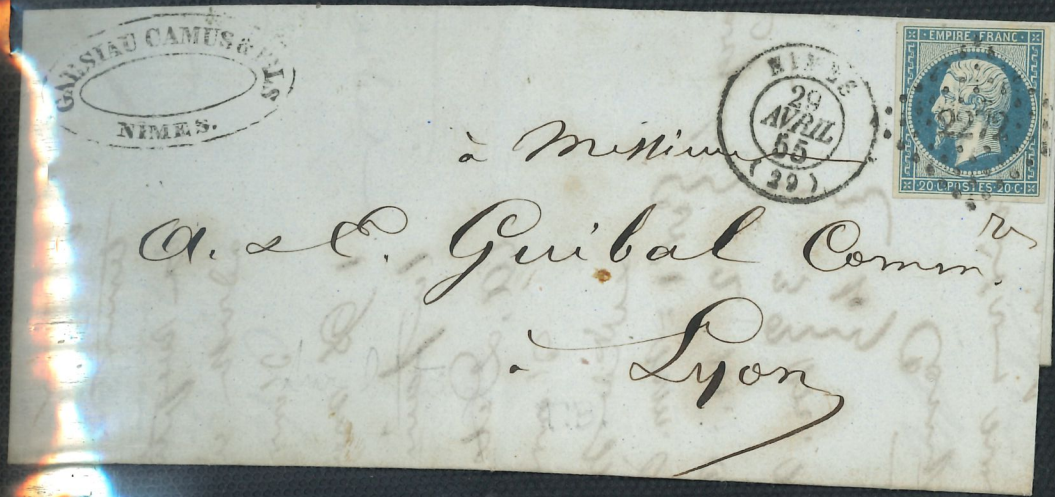 GARSIAU CAMUS & FILS
NIMES.
NIMES
29
AVRIL
55
(29)
EMPIRE FRANC
22
20 C POSTES 20 C
à Messieurs
A. & E. Guibal Comm.
à Lyon